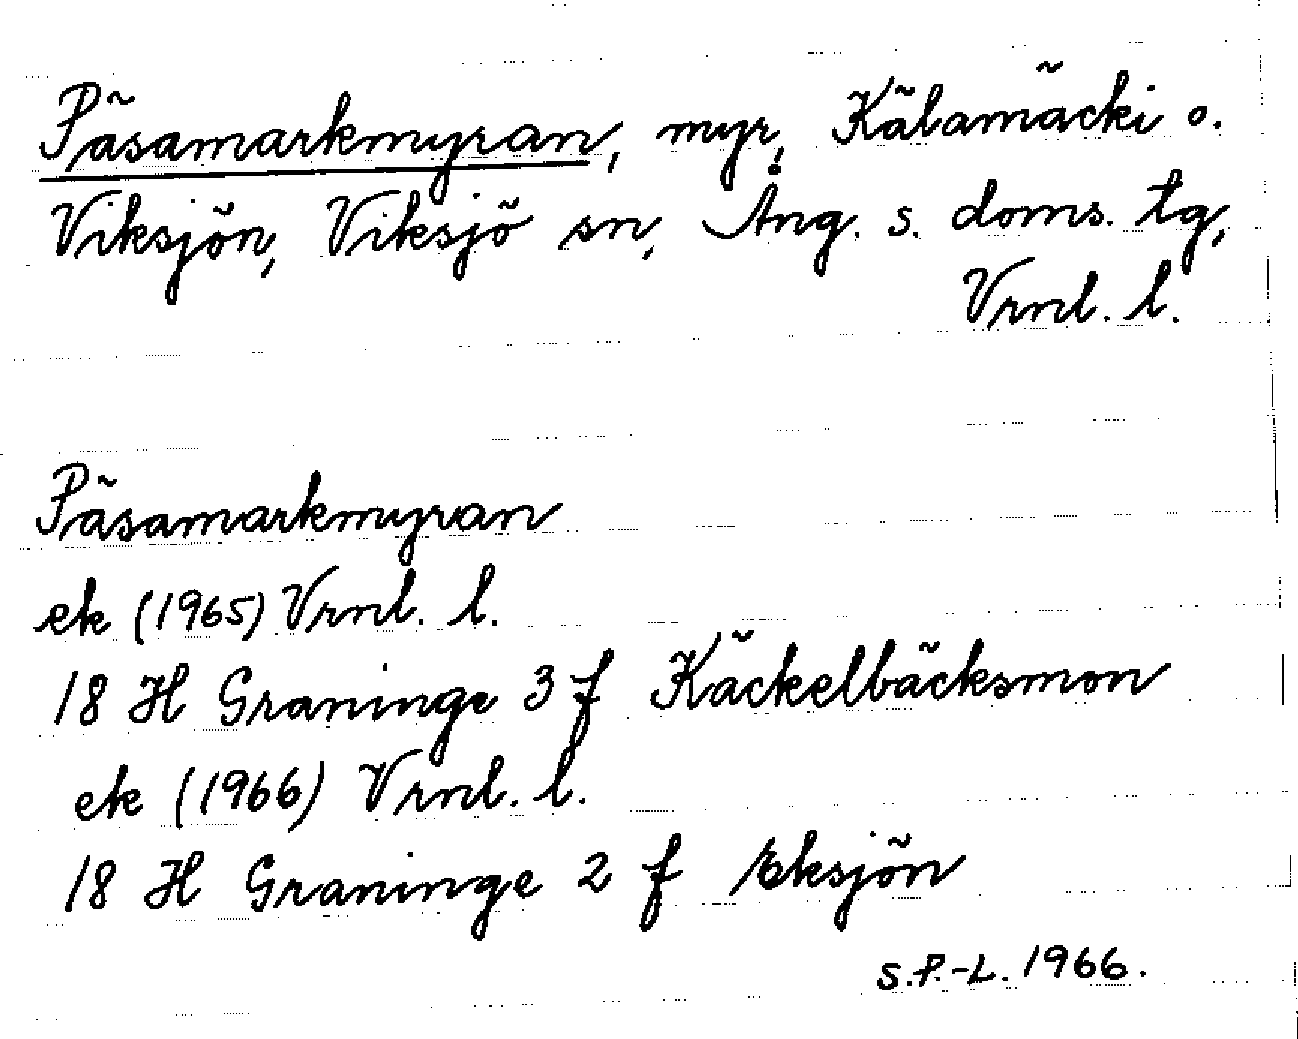 Päsamarkmyran, myr, Kälamäcki o.
Viksjön, Viksjö sn, Ång. s. doms. tg,
Vrnl. l.
Päsamarkmyran
ek (1965) Vrnl. l.
18 H Graninge 3 f Käckelbäcksmon
ek (1966) Vrnl. l.
18 H Graninge 2 f Eksjön
S.P.-L. 1966.